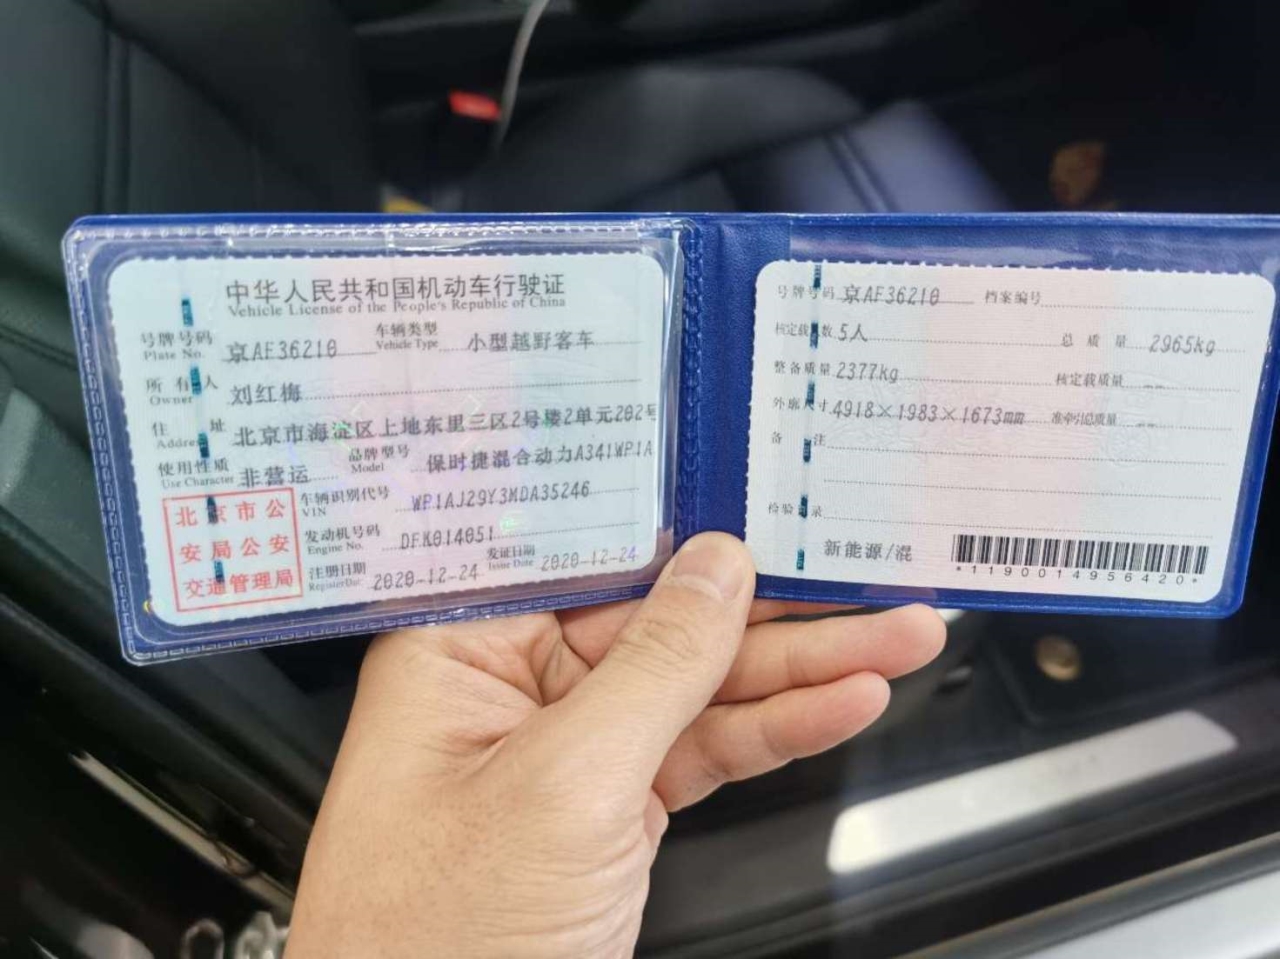 中华人民共和国机动车行驶证
Vehicle License of the People's Republic of China
号牌号码 京AF36210 车辆类型 小型越野客车
Plate No. Vehicle Type
所有人 刘红梅
Owner
住址 北京市海淀区上地东里三区2号楼2单元202号
Address
使用性质 非营运 品牌型号 保时捷混合动力A341WP1A
Use Character Model
北京市公
安局公安
交通管理局
车辆识别代号 WP1AJ29Y3MDA35246
VIN
发动机号码 DFK014051
Engine No.
注册日期 2020-12-24 发证日期 2020-12-24
Register Date Issue Date
号牌号码 京AF36210 档案编号
核定载人数 5人 总质量 2965kg
整备质量 2377kg 核定载质量 --
外廓尺寸 4918×1983×1673mm 准牵引总质量 --
备注
检验记录
新能源/混
*1190014956420*